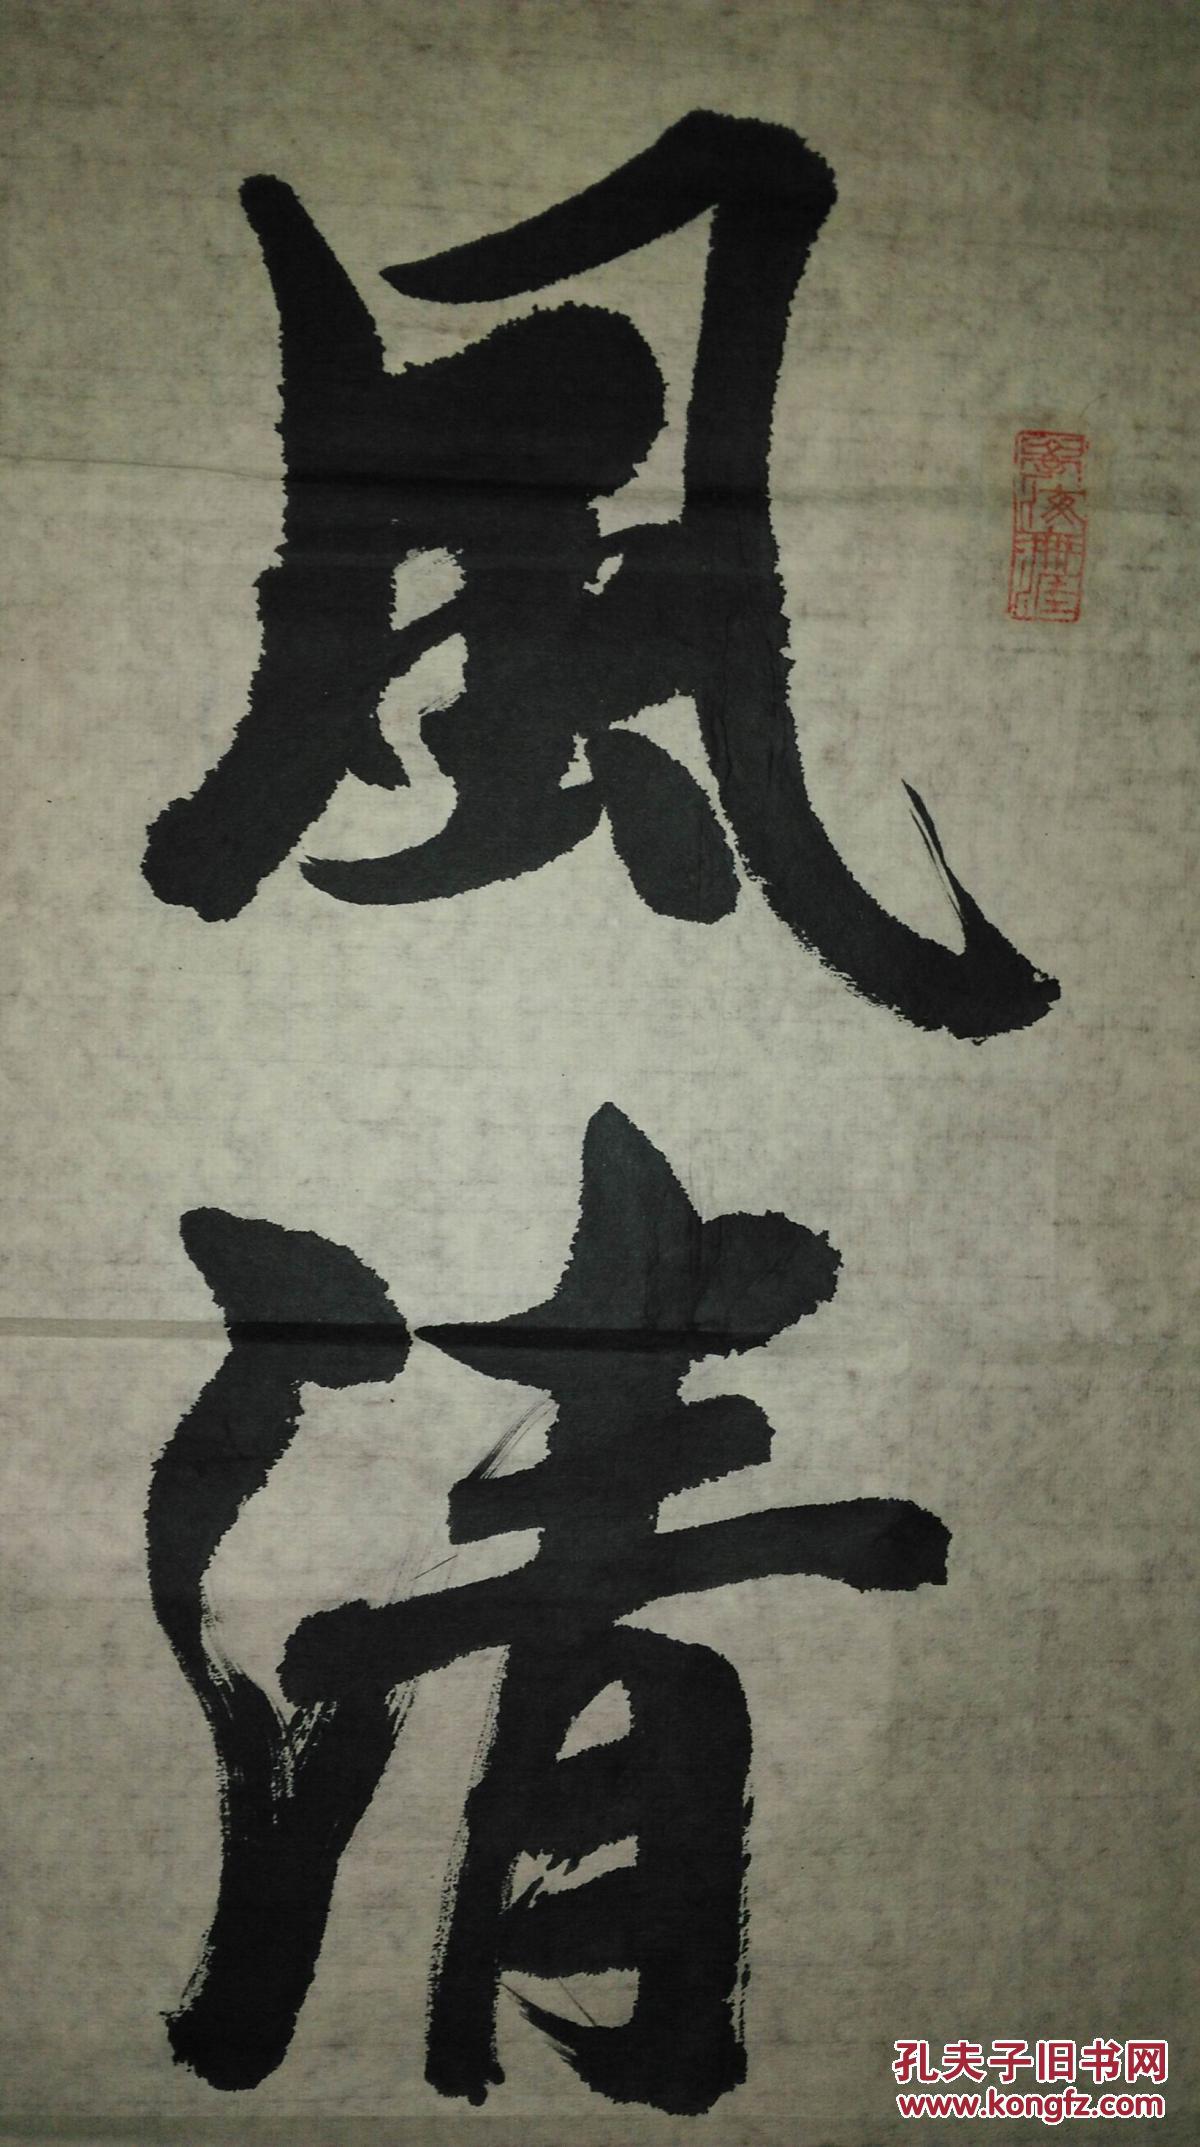 風
清
學海無涯
孔夫子旧书网
www.kongfz.com